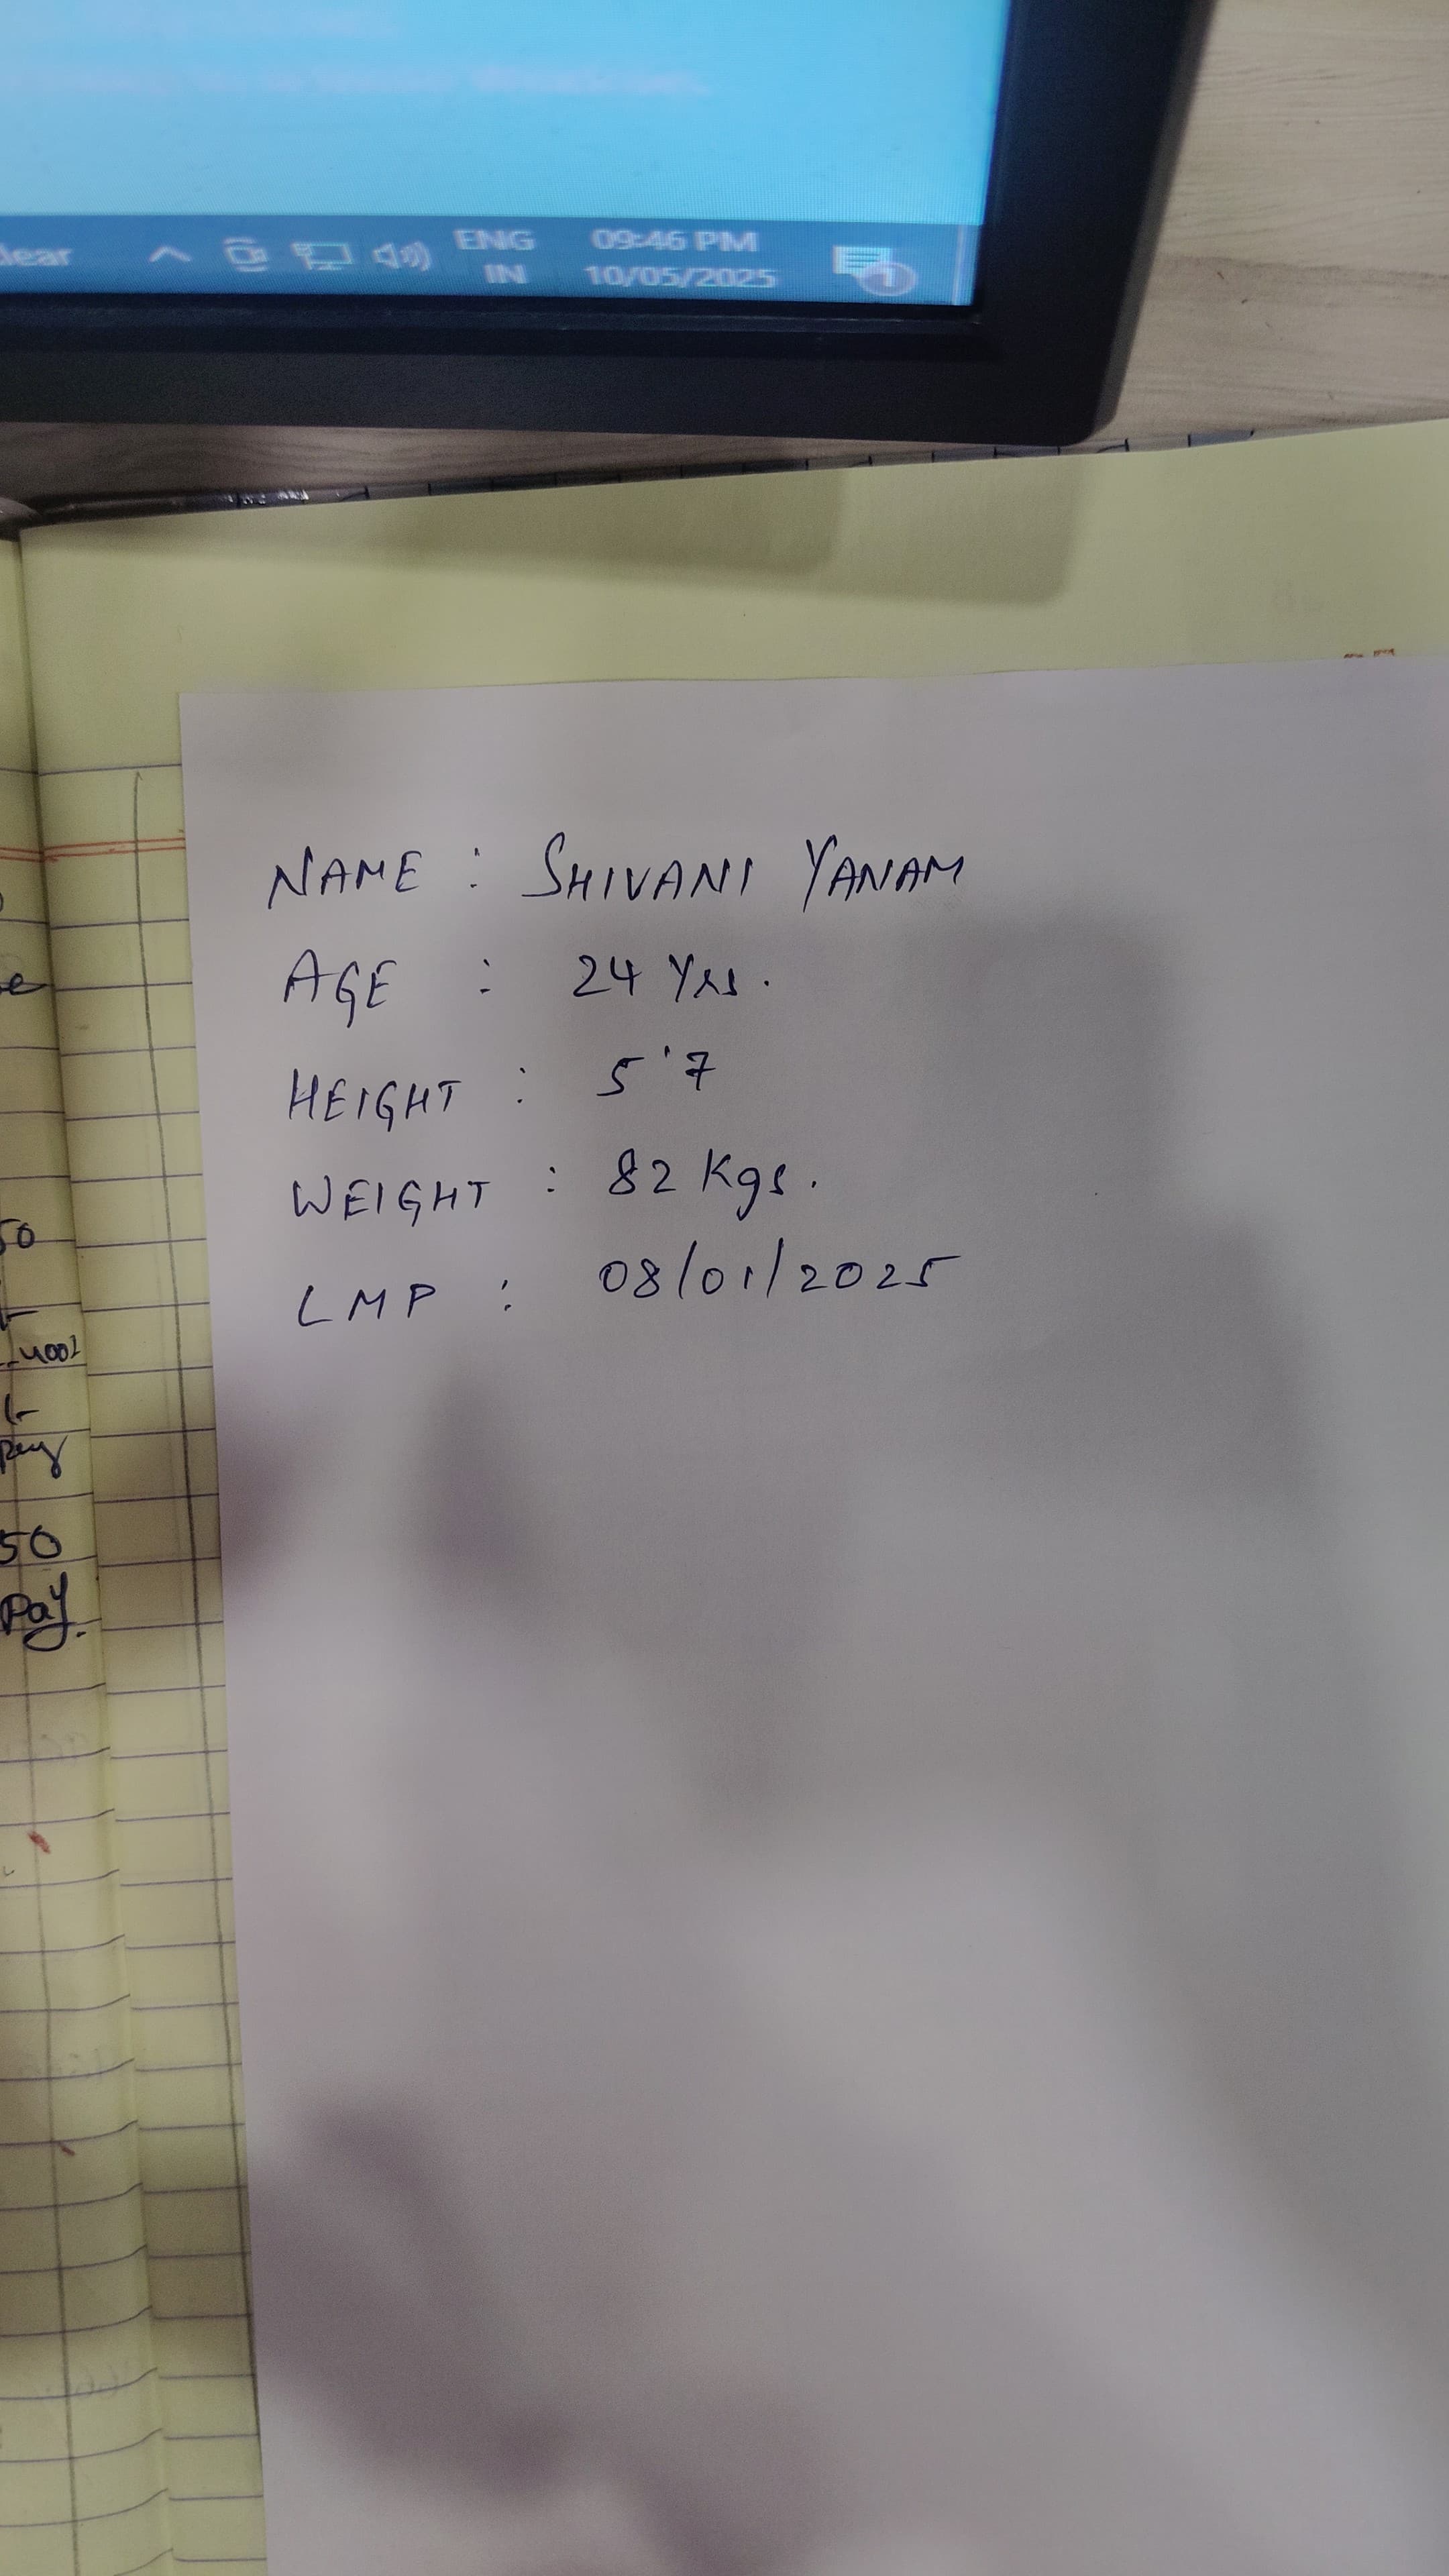 lear
ENG
IN
09:46 PM
10/05/2025
1
NAME : SHIVANI YANAM
AGE : 24 Yrs.
HEIGHT : 5'7
WEIGHT : 82 Kgs.
LMP : 08/01/2025
e
50
Pay
50
Pay.